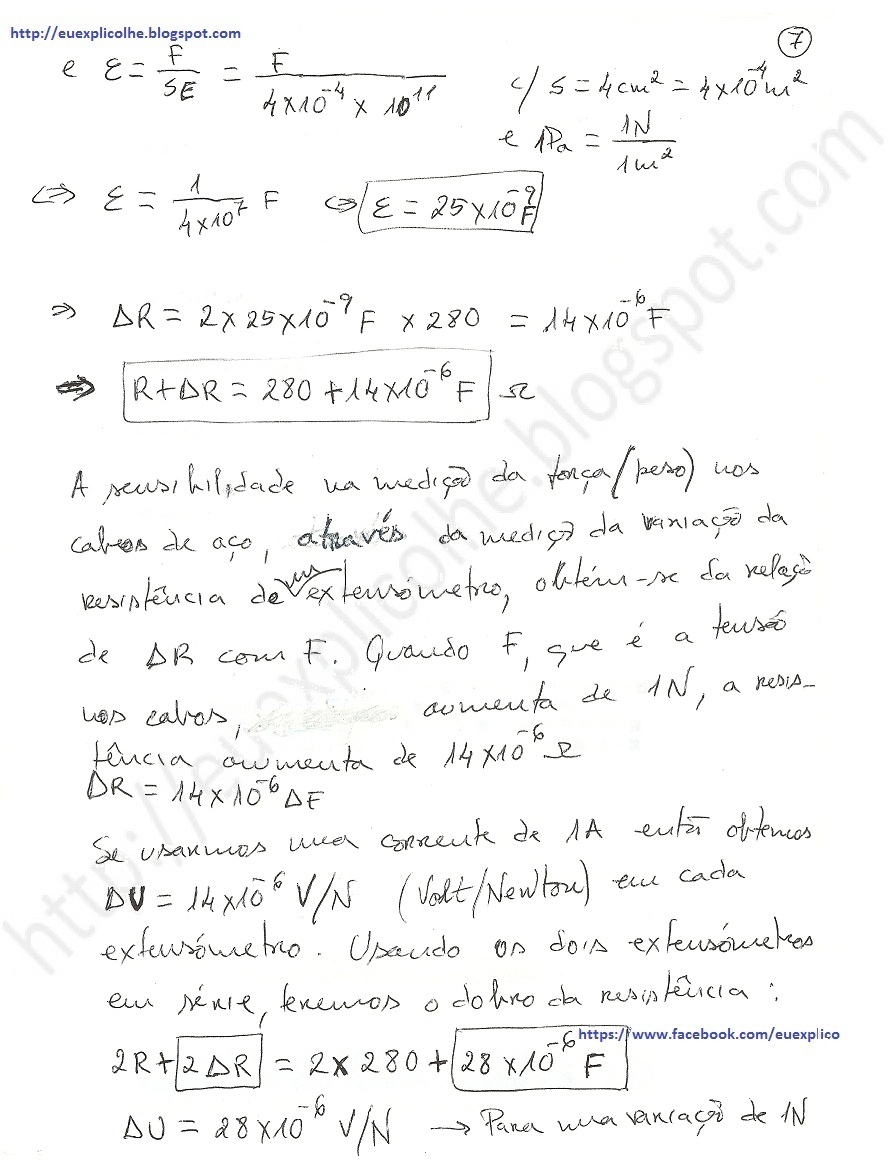 http://euexplicolhe.blogspot.com
7
e ε = F/SE = F/(4×10⁻⁴ × 10¹¹)
c/ S = 4cm² = 4×10⁻⁴m²
e 1Pa = 1N/1m²
⇔ ε = 1/(4×10⁷) F ⇔ ε = 25×10⁻⁹F
⇒ ΔR = 2×25×10⁻⁹F × 280 = 14×10⁻⁶F
⇒ R+ΔR = 280+14×10⁻⁶F Ω
A sensibilidade na medição da força/(peso) nos
cabos de aço, através da mediçõ da variação da
resistência de um extensómetro, obtém-se da relaçõ
de ΔR com F. Quando F, que é a tensão
nos cabos, aumenta de 1N, a resis-
tência aumenta de 14×10⁻⁶ Ω
ΔR = 14×10⁻⁶ ΔF
Se usarmos uma corrente de 1A então obtemos
ΔU = 14×10⁻⁶ V/N (Volt/Newton) em cada
extensómetro. Usando os dois extensómetros
em série, teremos o dobro da resistência:
https://www.facebook.com/euexplico
2R+2ΔR = 2×280+28×10⁻⁶ F
ΔU = 28×10⁻⁶ V/N → Para uma variação de 1N
http://euexplicolhe.blogspot.com